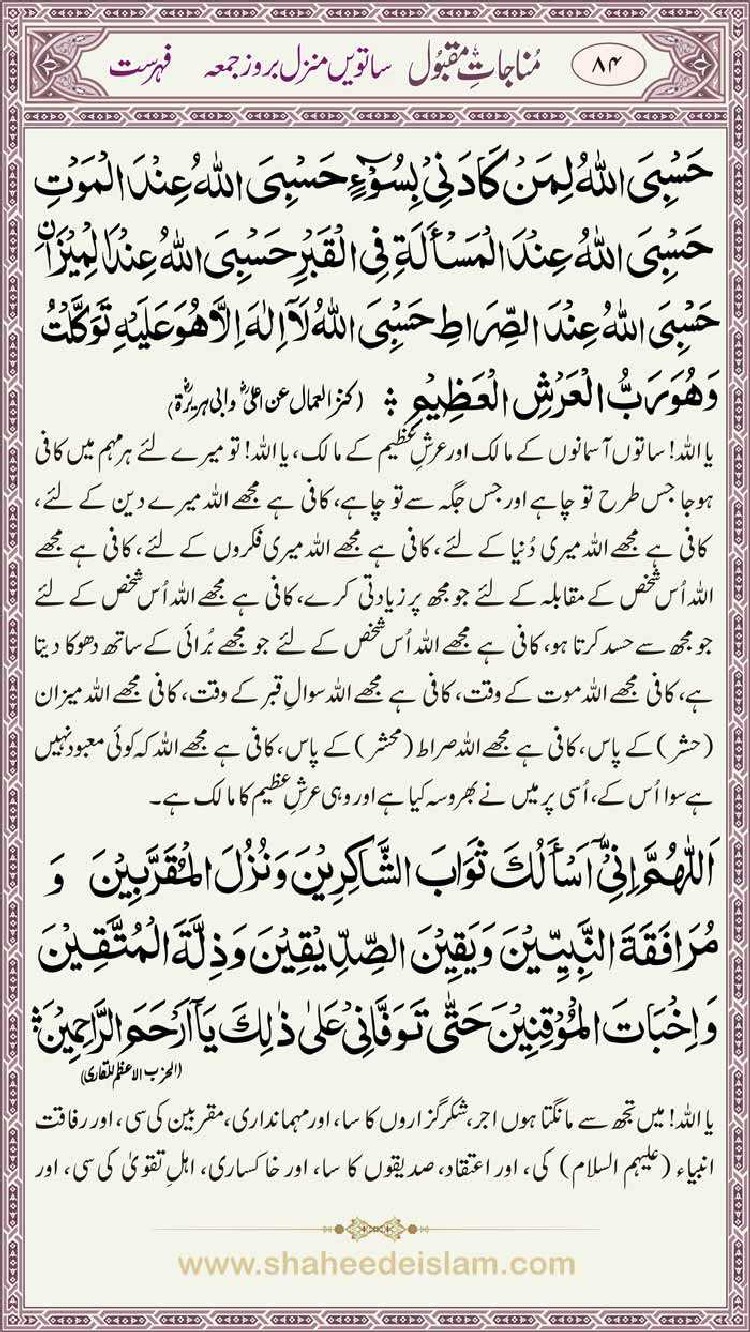 ۸۴ مُناجاتِ مقبُول ساتویں منزل بروز جمعہ فہرست
حَسْبِىَ اللهُ لِمَنْ كَادَنِىْ بِسُوْٓءٍ حَسْبِىَ اللهُ عِنْدَ الْمَوْتِ
حَسْبِىَ اللهُ عِنْدَ الْمَسْأَلَةِ فِى الْقَبْرِ حَسْبِىَ اللهُ عِنْدَ الْمِيْزَانِ
حَسْبِىَ اللهُ عِنْدَ الصِّرَاطِ حَسْبِىَ اللهُ لَآ اِلٰهَ اِلَّا هُوَ عَلَيْهِ تَوَكَّلْتُ
وَهُوَ رَبُّ الْعَرْشِ الْعَظِيْمِ (کنز العمال عن علیؓ وابی ہریرۃؓ)
یا اللہ! ساتوں آسمانوں کے مالک اور عرشِ عظیم کے مالک، یا اللہ! تو میرے لئے ہر مہم میں کافی
ہوجا جس طرح تو چاہے اور جس جگہ سے تو چاہے، کافی ہے مجھے اللہ میرے دین کے لئے،
کافی ہے مجھے اللہ میری دُنیا کے لئے، کافی ہے مجھے اللہ میری فکروں کے لئے، کافی ہے مجھے
اللہ اُس شخص کے مقابلہ کے لئے جو مجھ پر زیادتی کرے، کافی ہے مجھے اللہ اُس شخص کے لئے
جو مجھ سے حسد کرتا ہو، کافی ہے مجھے اللہ اُس شخص کے لئے جو مجھے بُرائی کے ساتھ دھوکا دیتا
ہے، کافی مجھے اللہ موت کے وقت، کافی ہے مجھے اللہ سوالِ قبر کے وقت، کافی مجھے اللہ میزان
(حشر) کے پاس، کافی ہے مجھے اللہ صراط (محشر) کے پاس، کافی ہے مجھے اللہ کہ کوئی معبود نہیں
ہے سوا اُس کے، اُسی پر میں نے بھروسہ کیا ہے اور وہی عرشِ عظیم کا مالک ہے۔
اَللّٰهُمَّ اِنِّىْٓ اَسْأَلُكَ ثَوَابَ الشَّاكِرِيْنَ وَنُزُلَ الْمُقَرَّبِيْنَ وَ
مُرَافَقَةَ النَّبِيِّيْنَ وَيَقِيْنَ الصِّدِّيْقِيْنَ وَذِلَّةَ الْمُتَّقِيْنَ
وَاِخْبَاتَ الْمُؤْقِنِيْنَ حَتّٰى تَوَفَّانِىْ عَلٰى ذٰلِكَ يَآ اَرْحَمَ الرَّاحِمِيْنَ
(الحزب الاعظم للقاری)
یا اللہ! میں تجھ سے مانگتا ہوں اجر، شکر گزاروں کا سا، اور مہمانداری، مقربین کی سی، اور رفاقت
انبیاء (علیہم السلام) کی، اور اعتقاد، صدیقوں کا سا، اور خاکساری، اہلِ تقویٰ کی سی، اور
www.shaheedeislam.com